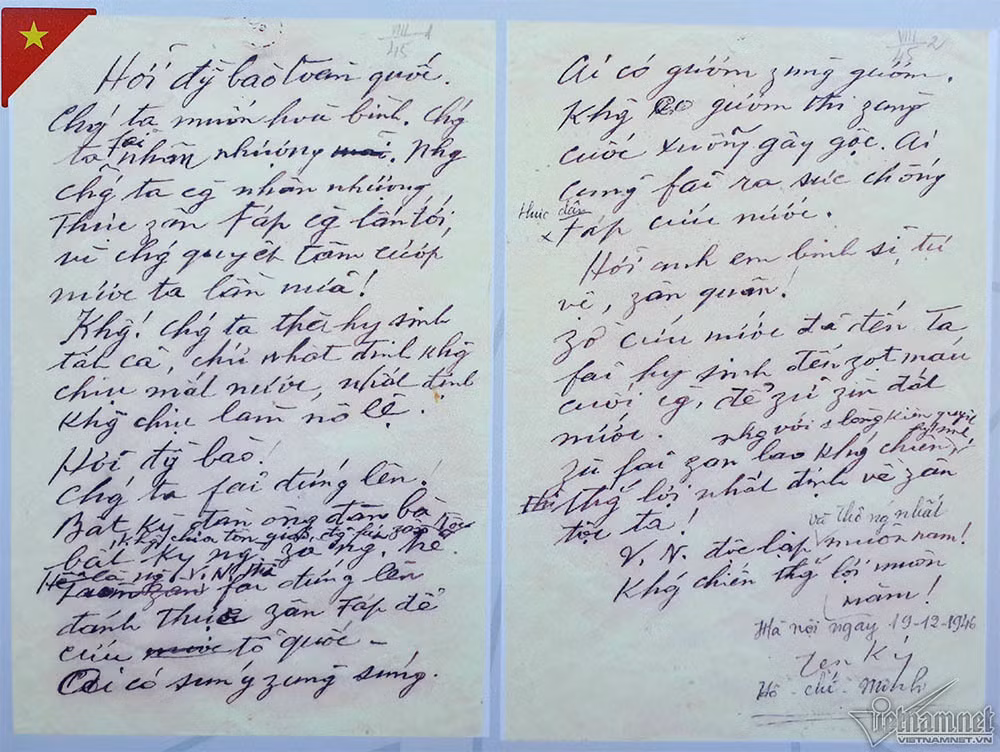 VIII-1
45
Hỡi đồng bào toàn quốc.
Chg ta muốn hoà bình. Chg
ta fải nhân nhượng. Nhg
chg ta cg nhân nhượng,
Thực zân Fáp cg lấn tới,
vì chg quyết tâm cướp
nước ta lần nữa!
Khg! Chg ta thà hy sinh
tất cả, chứ nhất định khg
chịu mất nước, nhất định
khg chịu làm nô lệ.
Hỡi đg bào!
Chg ta fải đứng lên!
Bất kỳ đàn ông đàn bà
bất kỳ ng zà ng trẻ.
khg chia tôn záo, đg fái, zân tộc
Hễ là ng V.N. thì
fải đứng lên
đánh thực zân Fáp để
cứu tổ quốc –
Ai có súng zùng súng.
VIII-2
45
Ai có gươm zùng gươm.
Khg có gươm thì zùng
cuốc xuổng gậy gộc. Ai
cũng fải ra sức chống
thực dân
x Fáp cứu nước.
Hỡi anh em binh sĩ, tự
vệ, zân quân!
Zờ cứu nước đã đến. Ta
fải hy sinh đến zọt máu
cuối cg, để zữ zìn đất
nước.
Zù fải zan lao khg chiến
nhg với 1 lòng kiên quyết
hy sinh
Thì thg lợi nhất định về zân
tộc ta!
và thống nhất
V.N. độc lập muôn năm!
Khg chiến thg lợi muôn
năm!
Hà nội ngày 19-12-1946
Hồ - chí - Minh
vietnamnet
VIETNAMNET.VN